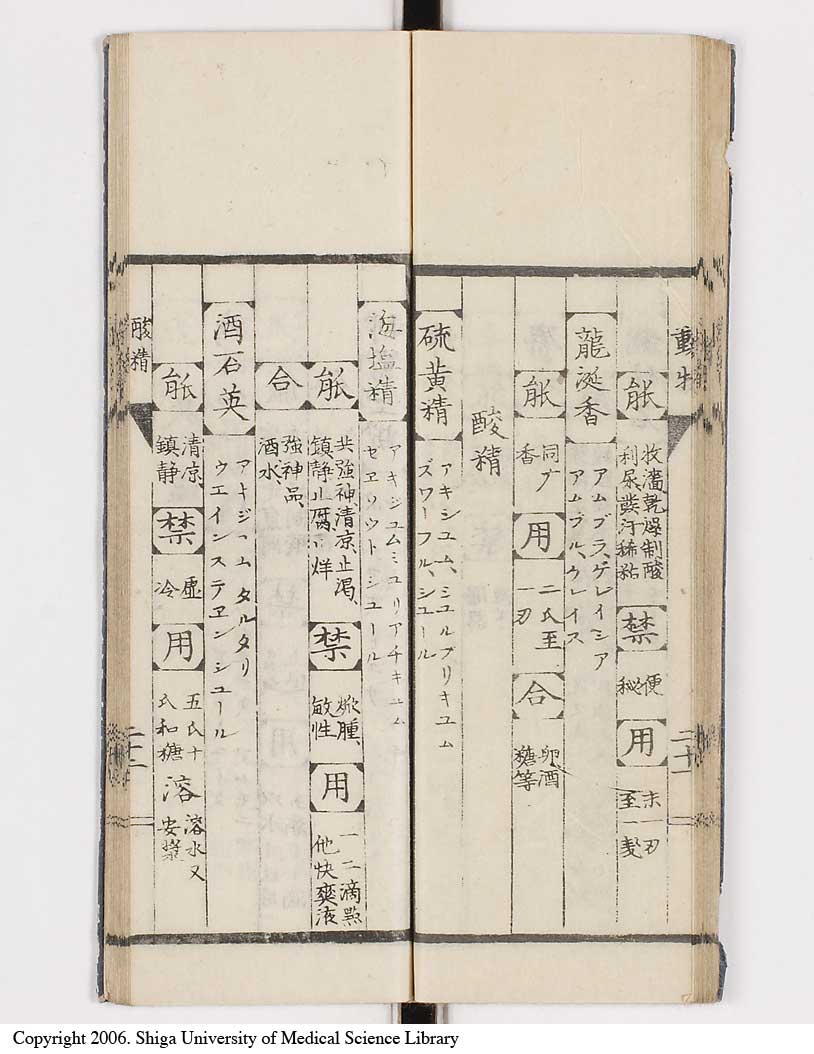 動物
能 收濇乾燥制酸
利尿發汗稀粘 禁 便
秘 用 末一刃
至一戔
二十一
龍涎香 アムブラ、ゲレイシア
アムブル、グレイス
能 同ナ
香 用 二氏至
一刃 合 卵酒
糖等
酸精
硫黄精 アキシユム、ミユルブリキユム
ズワーフル、シユール
海塩精 アキジユムミユリアチキユム
セエソウトシユール
能 共強神清凉、止渇、
鎮静止腐 禁 焮腫、
敏性 用 一二滴点
他快爽液
合 強神品、
酒水、
酒石英 アキジユム タルタリ
ウエインステエンシユール
能 清凉、
鎮静 禁 虚
冷 用 五氏十
氏和糖、 溶 溶水又
安漿
酸精
二十二
Copyright 2006. Shiga University of Medical Science Library